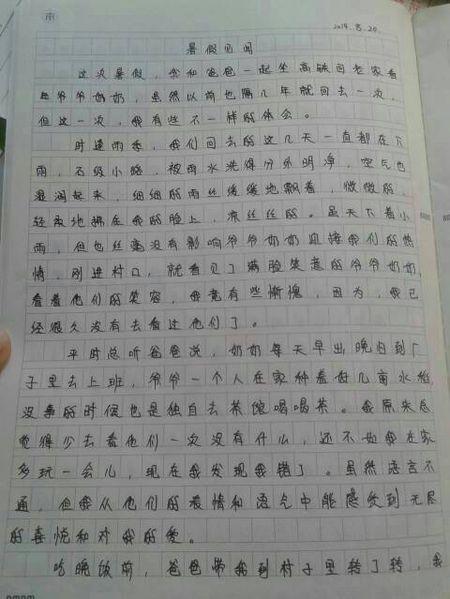 雨
2014.8.20.
暑假见闻
这次暑假，我和爸爸一起坐高铁回老家看
望爷爷奶奶，虽然以前也隔几年就回去一次，
但这一次，我有些不一样的体会。
时逢雨季，我们回去的这几天一直都在下
雨，石级小路，被雨水洗得分外明净，空气也
湿润起来，细细的雨丝缓缓地飘着，微微的、
轻柔地拂在我的脸上，凉丝丝的。虽天下着小
雨，但也丝毫没有影响爷爷奶奶迎接我们的热
情，刚进村口，就看见了满脸笑意的爷爷奶奶，
看着他们的笑容，我竟有些惭愧，因为，我已
经很久没有去看过他们了。
平时总听爸爸说，奶奶每天早出晚归到厂
子里去上班，爷爷一个人在家种着好几亩水稻，
没事的时候也是独自去茶馆喝喝茶。我原来总
觉得少去看他们一次没有什么，还不如我在家
多玩一会儿，现在我发现我错了。虽然语言不
通，但我从他们的表情和语气中能感受到无尽
的喜悦和对我的爱。
吃晚饭前，爸爸带我到村子里转了转，我